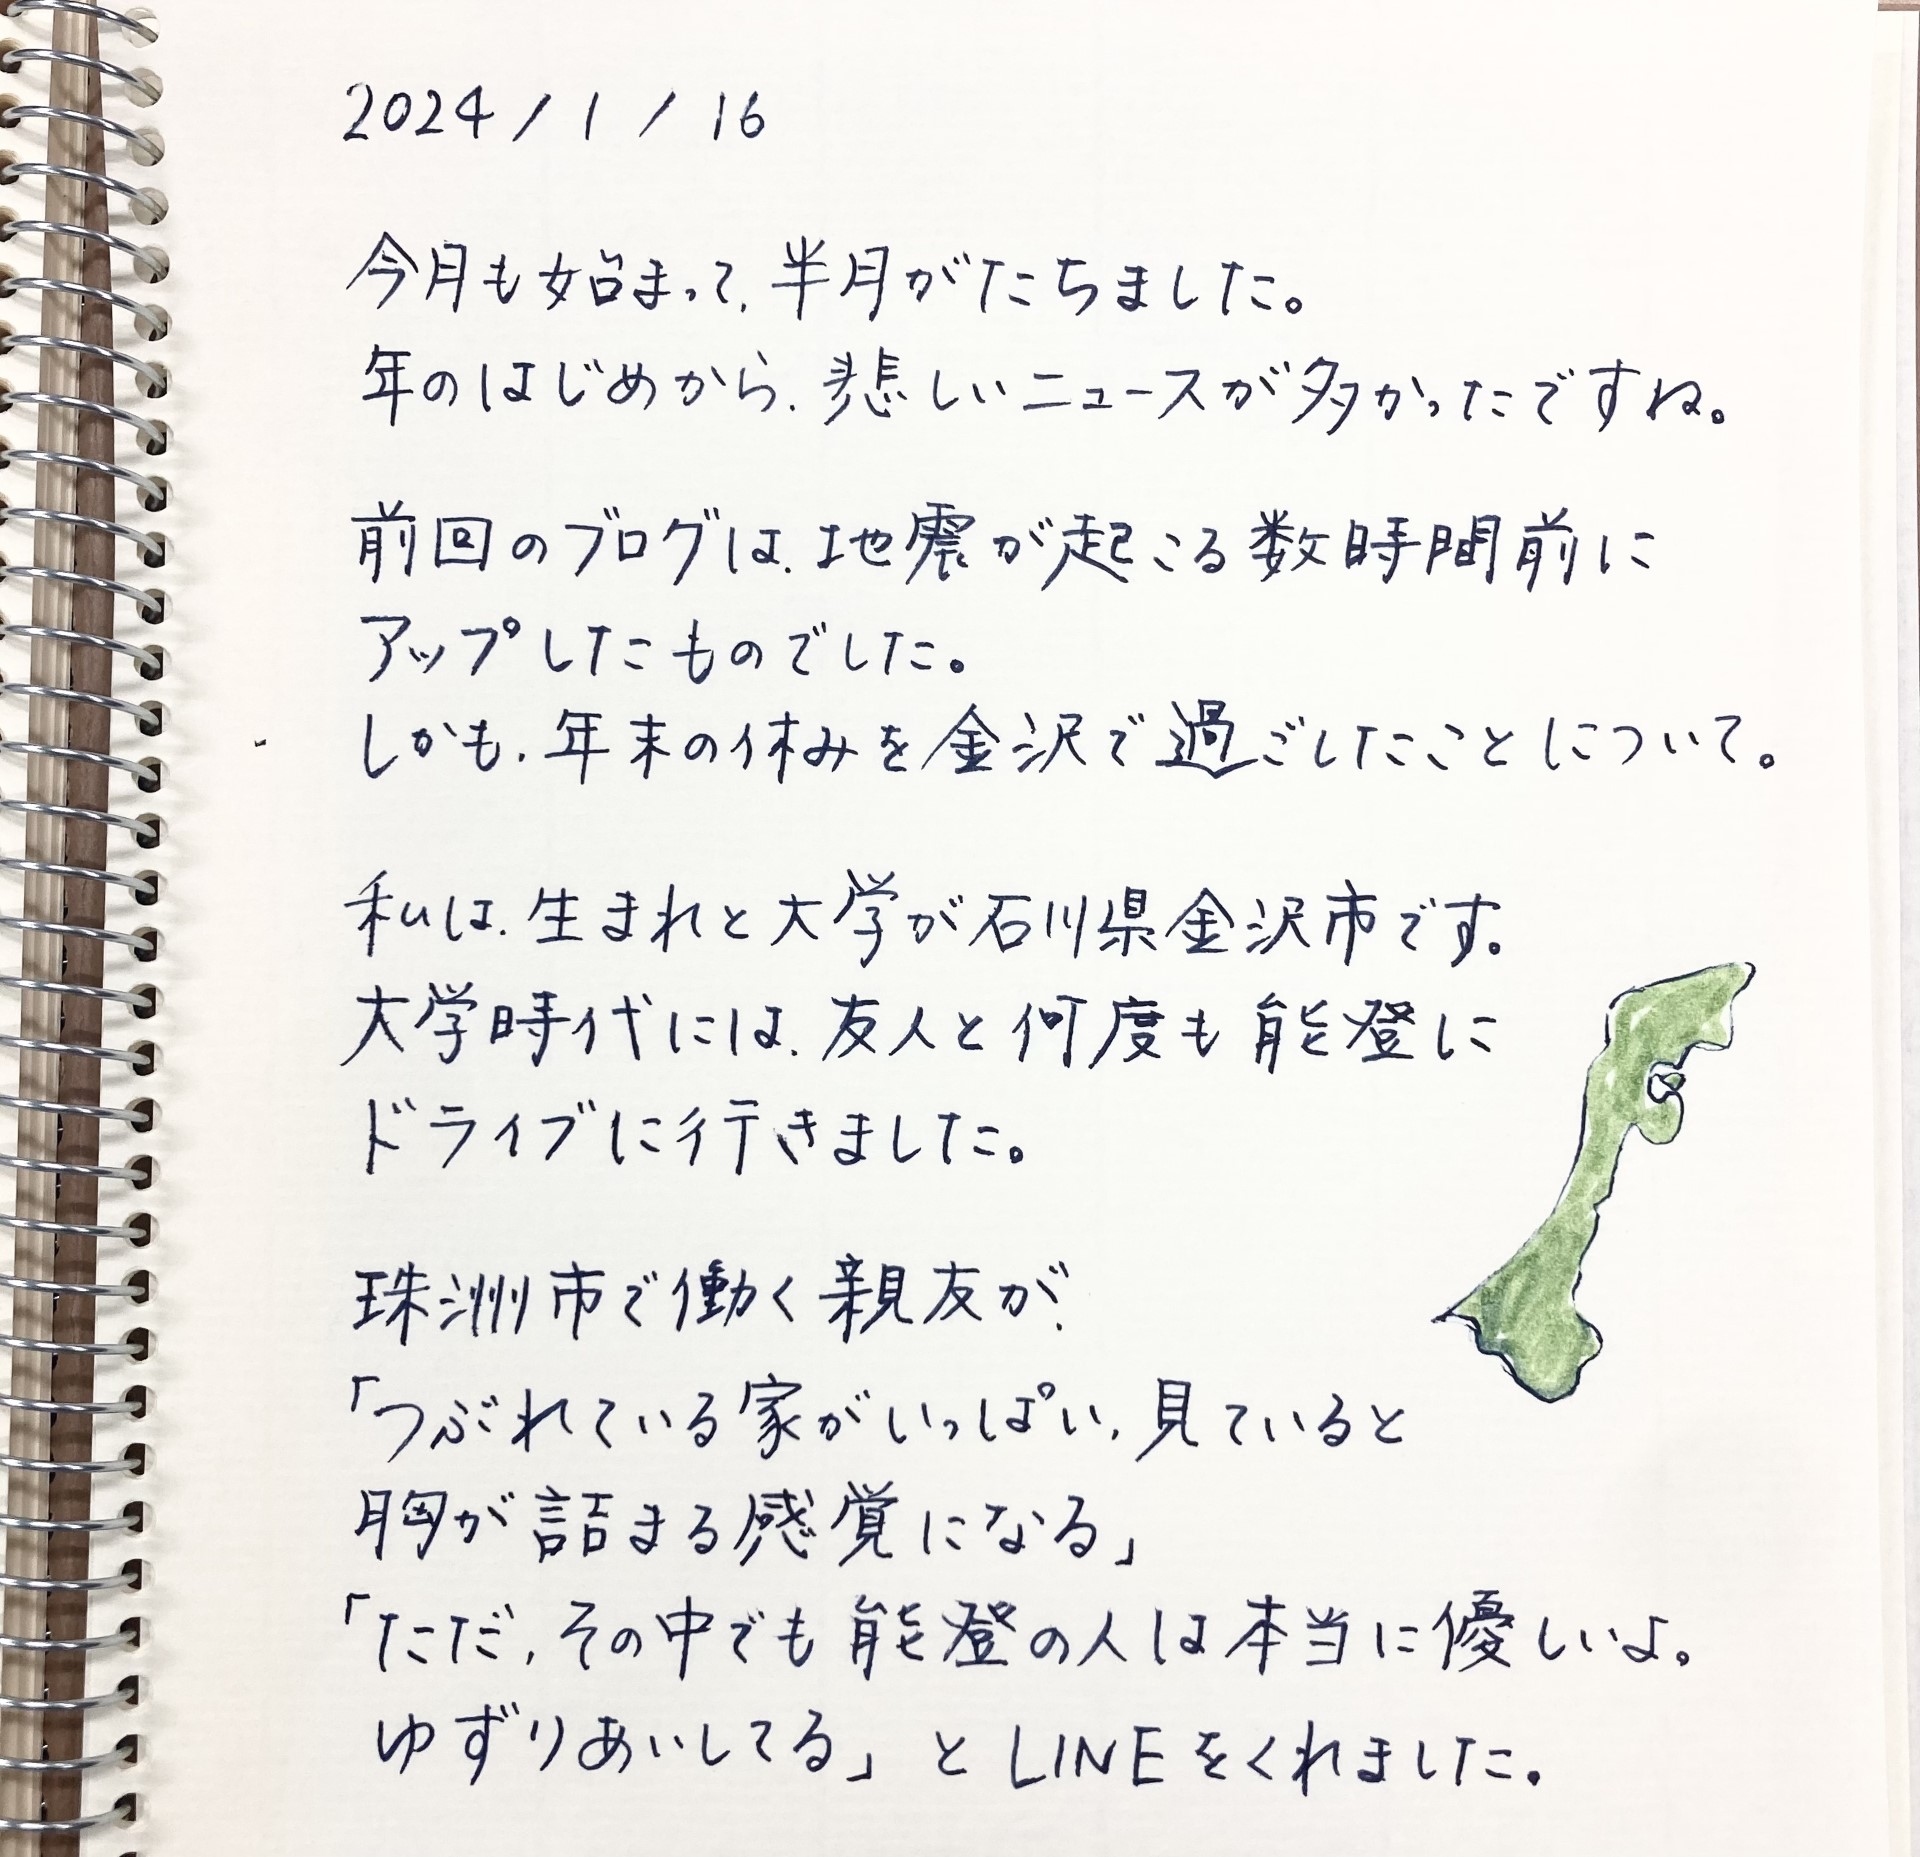 2024/1/16
今月も始まって、半月がたちました。
年のはじめから、悲しいニュースが多かったですね。
前回のブログは、地震が起こる数時間前に
アップしたものでした。
しかも、年末の休みを金沢で過ごしたことについて。
私は、生まれと大学が石川県金沢市です。
大学時代には、友人と何度も能登に
ドライブに行きました。
珠洲市で働く親友が、
「つぶれている家がいっぱい、見ていると
胸が詰まる感覚になる」
「ただ、その中でも能登の人は本当に優しいよ。
ゆずりあいしてる」とLINEをくれました。